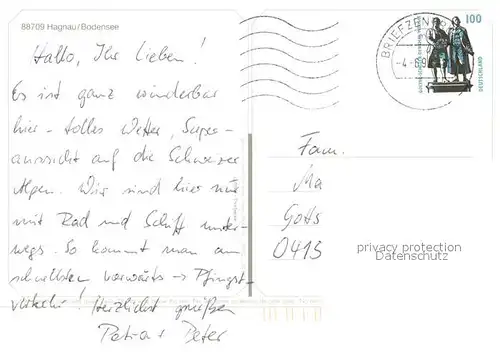 88709 Hagnau/Bodensee
Hallo, Ihr Lieben!
Es ist ganz wunderbar
hier - tolles Wetter, Super-
aussicht auf die Schweizer
Alpen. Wir sind hier nur
mit Rad und Schiff unter-
wegs. So kommt man am
schnellsten vorwärts → Pfingst-
verkehr! Herzlichst grüßen
Petra + Peter
BRIEFZEN
100
DEUTSCHLAND
Fam.
Ma
Gotts
0415
privacy protection
Datenschutz